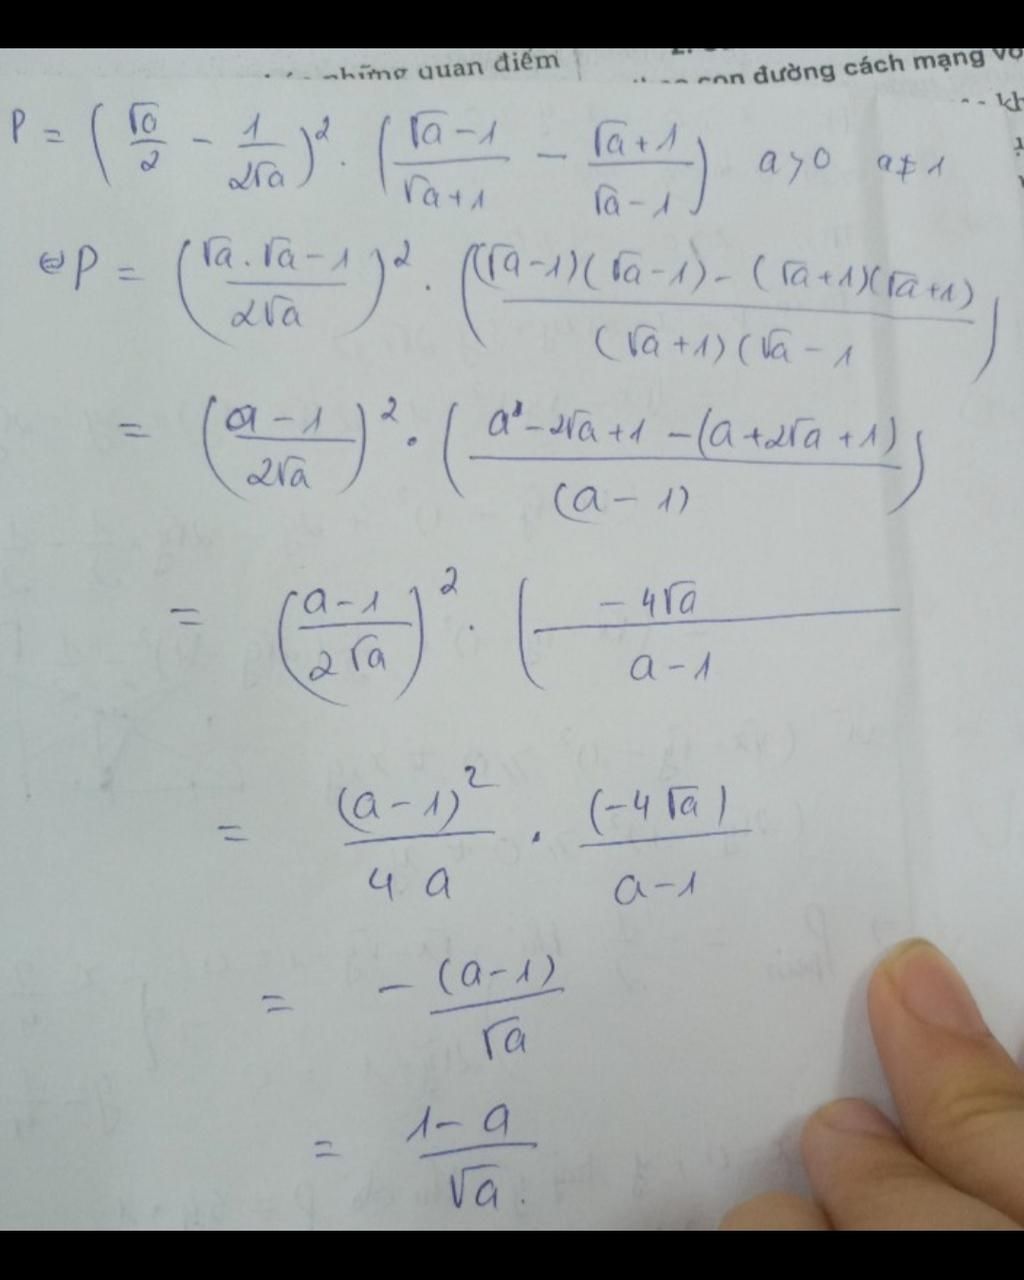 những quan điểm
con đường cách mạng vô
kh
P = (√a/2 - 1/2√a)² . (√a-1/√a+1 - √a+1/√a-1) a>0 a≠1
⇔ P = (√a.√a-1/2√a)² . ((√a-1)(√a-1)-(√a+1)(√a+1)/(√a+1)(√a-1)
= (a-1/2√a)² . (a-2√a+1-(a+2√a+1)/(a-1))
= (a-1/2√a)² . (-4√a/a-1
= (a-1)²/4a . (-4√a)/a-1
= -(a-1)/√a
= 1-a/√a.